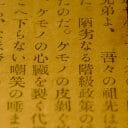 よ、吾々の祖先は
陋劣なる階級政策の
のだ。ケモノの皮剝
ケモノの心臓を裂く代
こへ下らない嘲笑の唾ま